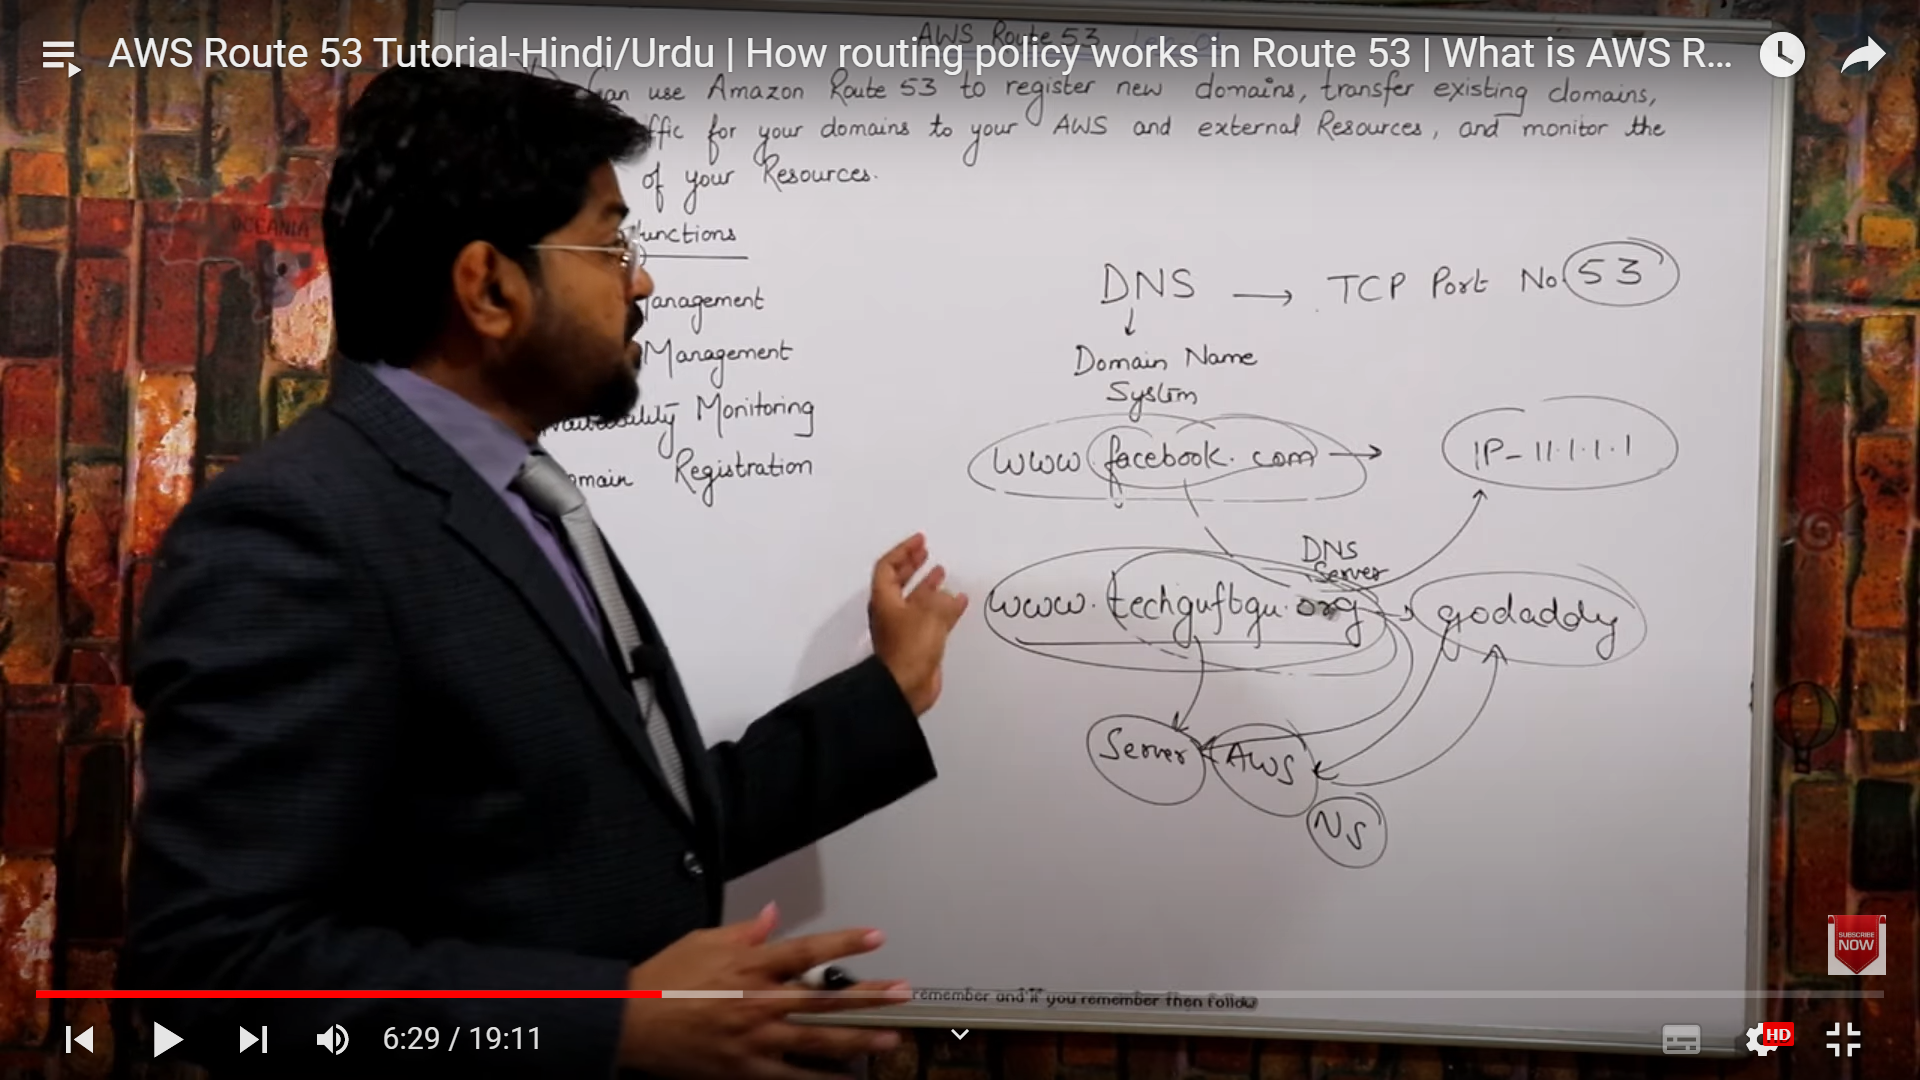 AWS Route 53 Tutorial-Hindi/Urdu | How routing policy works in Route 53 | What is AWS R...
AWS Route 53
can use Amazon Route 53 to register new domains, transfer existing domains,
ffic for your domains to your AWS and external Resources, and monitor the
of your Resources.
unctions
anagement
Management
Monitoring
omain Registration
DNS → TCP Port No 53
Domain Name
System
www.facebook.com → IP-11.1.1.1
DNS
Server
www.techguftgu.org → godaddy
Server AWS
NS
OCEANIA
SUBSCRIBE
NOW
remember and if you remember then follow
6:29 / 19:11
HD